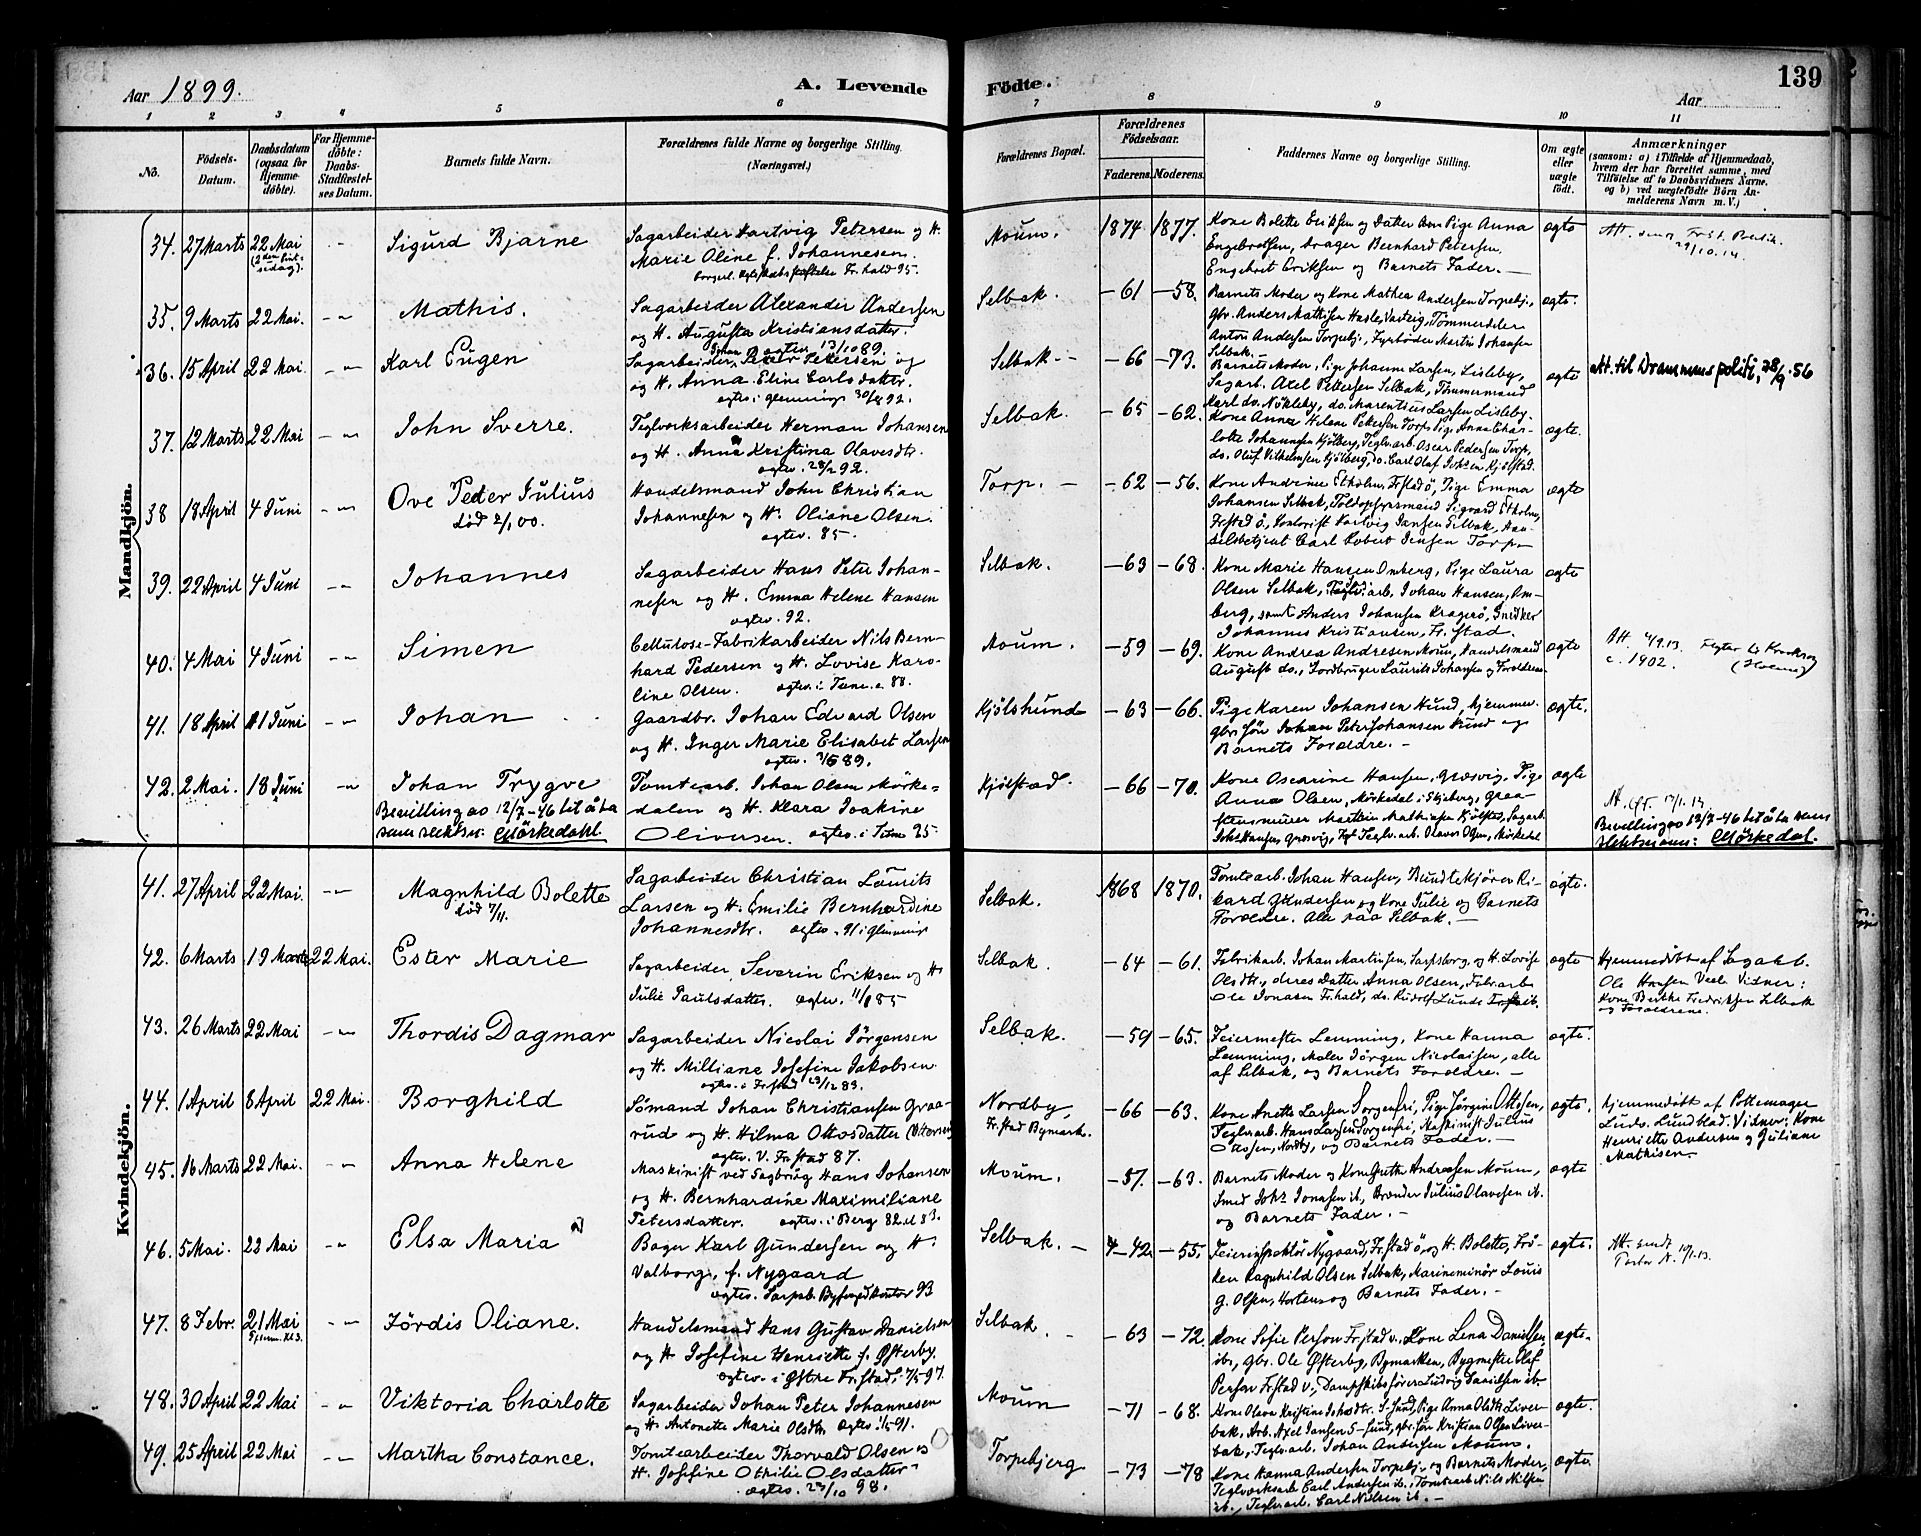 139
Aar 1899.
A. Levende
Födte.
Aar
1 2 3 4 5 6 7 8 9 10 11
No.
Födsels-Datum.
Daabsdatum (ogsaa for Hjemme-döbte).
For Hjemme-döbte: Daabs-Stadfæstel-ses Datum.
Barnets fulde Navn.
Forældrenes fulde Navne og borgerlige Stilling. (Næringsvei.)
Forældrenes Bopæl.
Forældrenes Födselsaar.
Faderens. Moderens.
Faddernes Navne og borgerlige Stilling.
Om ægte eller uægte födt.
Anmærkninger
(saasom: a) i Tilfælde af Hjemmedaab, hvem der har forrettet samme, med Tilföielse af to Daabsvidners Navne, og b) ved uægtefödte Börn Anmelderens Navn m. V.)
Mandkjön.
34. 27 Marts 22 Mai (2den Pintsedag). Sigurd Bjarne
Sagarbeider Hartvig Petersen og H.
Marie Oline f. Johannesen.
Moum. 1874. 1877.
Kone Bolette Eriksen og Datter Pige Anna
Engebretsen, Drager Bernhard Petersen,
Engebret Eriksen og Barnets Fader. —
ægte
29/10.14.
35. 9 Marts 22 Mai. Mathis.
Sagarbeider Alexander Andersen
og H. Augusta Kristiansdatter.
ægtev. 13/10 89.
Selbak. —61 —58.
Barnets Moder og Kone Mathea Andersen Torpebj.,
gbr. Anders Mathisen Hasle, Varteig, Tömmerdeler
Anton Andersen Torpebj., Fyrböder Martin Johansen
Selbak. —
ægte.
36. 15 April 22 Mai. Karl Eugen
Sagarbeider Peter Petersen og
og H. Anna Eline Carlsdatter.
ægtev. i Glemminge 30/8 92.
Selbak — —66 —73.
Barnets Moder, Pige Johanne Larsen, Lisleby,
Sagarb. Axel Pettersen Selbak, Tömmermand
Karl do. Nökleby, do. Marentius Larsen Lisleby.
ægte
Att. til Drammens politi, 28/9.56
37. 12 Marts 22 Mai John Sverre.
Teglverksarbeider Herman Johansen
og H. Anna Kristina Olavesdtr.
ægtev. 28/2 92.
Selbak. —65 —62.
Kone Anna Helene Pettersen Torp, Pige Anna Char-
lotte Johannesen Kjölberg, Teglv.arb. Oscar Pedersen Torp,
do. Oluf Vilhelmsen Kjölberg, do. Carl Olaf Johsen Kjölstad.
ægte.
38 18 April 4 Juni Ove Peder Julius
död 2/1 00.
Handelsmand John Christian
Johannesen og H. Oliane Olsen.
ægtev. 85.
Torp. — —62 —56.
Kone Andrine Etholm, Fr.stad Ö, Pige Emma
Johansen Selbak, Toldopsynsmand Sigvard Etholm,
Fr.stad Ö, Hartvig Jansen Selbak, Han-
delsbetjent Carl Robert Jensen Torp.
ægte
39. 22 April 4 Juni Johannes
Sagarbeider Hans Peter Johan-
nesen og H. Emma Helene Hansen
ægtev. 92.
Selbak. —63 —68.
Kone Marie Hansen Omberg, Pige Laura
Olsen Selbak, Teglv.arb. Johan Hansen, Om-
berg, samt Anders Johansen Kragerö, Snedker
Johannes Kristiansen, Fr.stad.
ægte
40. 4 Mai 4 Juni Simen
Cellulose-Fabrikarbeider Nils Bern-
hard Pedersen og H. Lovise Karo-
line Olsen. ægtev. i Tune. 88.
Moum. —59 —69.
Kone Andrea Andresen Moum, Handelsmand
August do., Jordbruger Laurits Johansen og Forældrene.
ægte
Att. 4/9.13.
c. 1902.
41. 18 April 11 Juni Johan
Gaardbr. Johan Edvard Olsen
og H. Inger Marie Elisabet Larsen
ægtev. 89.
Kjölshund —63 —66.
Pige Karen Johansen Hund, hjemmev.
gbr.sön Johan Peter Johansen Hund og
Barnets Forældre. —
ægte.
42. 2 Mai. 18 Juni Johan Trygve
Bevilling av 12/7-46 til å ta
som slektsn: Mörkedahl.
Tomtearb. Johan Olsen Mörke-
dalen og H. Klara Joakine
Oliversen. ægtev. i Tune 95.
Kjölstad. —66 —70.
Kone Oscarine Hansen, Græsvig, Pige
Anna Olsen, Mörkedal i Skjeberg, Graa-
stensmurer Martin Mathisen Kjölstad, Sagarb.
Johs Hansen, Græsvig, Teglv.arb. Olaves Olsen, Mörkedal
ægte
Bevilling av 12/7-46 til å ta som
slektsnavn: Mörkedal.
Kvindekjön.
41. 27 April 22 Mai. Magnhild Bolette
död 7/11.
Sagarbeider Christian Laurits
Larsen og H. Emilie Bernhardine
Johannesdtr. ægtev. 91 i Glemminge
Selbak. 1868 1870.
Tomtearb. Johan Hansen, Bundtekjörer Ri-
kard Gundersen og Kone Julie og Barnets
Forældre. Alle paa Selbak. —
ægte.
42. 6 Marts 19 Marts 22 Mai. Ester Marie
Sagarbeider Severin Eriksen og H.
Julie Paulsdatter. ægtev. 11/1 85
Selbak. —64 —61.
Fabrikarb. Johan Martinsen, Sarpsborg, og H. Lovise
Olsdtr., deres Datter Anna Olsen, Fabr.arb.
Ole Jonasen Fr.hald, do. Rudolf Lunde
ægte
Hjemmedöbt af Sagarb.
Ole Hansen Vidner:
Kone Berthe Fredriksen Selbak
og Forældrene.
43. 26 Marts 22 Mai Thordis Dagmar
Sagarbeider Nicolai Jörgensen
og H. Milliane Josefine Jakobsen.
ægtev. i Fr.stad 29/12 83.
Selbak. —59 —65.
Feiermester Lemming, Kone Hanna
Lemming, Maler Jörgen Nicolaisen, alle
af Selbak, og Barnets Forældre. —
ægte.
44. 1 April 8 April 22 Mai. Borghild
Sömand Johan Christiansen Graa-
rud og H. Hilma Ottosdatter (Ottersen)
ægtev. V. Fr.stad 87.
Nordby, Fr.stad Bymark. —66 —63.
Kone Anette Larsen Sorgenfri, Pige Jörgine Ottesen,
Teglv.arb. Hans Larsen Sorgenfri, Maskinist Julius
Ottosen, Nordby, og Barnets Fader. —
ægte.
Hjemmedöbt af Pottemager
Ludv. Lundblad. Vidner: Kone
Henriette Andersen og Juliane
Mathisen.
45. 16 Marts 22 Mai. Anna Helene
Maskinist ved Sagbrug Hans Johansen
og H. Bernhardine Maximiliane
Petersdatter. ægtev. i Berg 82 el 83.
Moum. —57. —63.
Barnets Moder og Kone Grethe Andresen Moum,
Smed Johs Jonasen ib., Brænder Julius Olavesen ib.
og Barnets Fader. —
ægte
46. 5 Mai. 22 Mai Elsa Maria
Bager Karl Gundersen og H.
Valborg, f. Nygaard
ægtev. Sarpsb. Byfogedkontor 93
Selbak. — —42. —55.
Feierinspektör Nygaard, Fr.stad Ö, og H. Bolette, Frö-
ken Ragnhild Olsen Selbak, Marineminör Louis
G. Olsen, Horten, og Barnets Fader. —
ægte.
Att. sendt
47. 8 Febr. 21 Mai Jördis Oliane.
Handelsmand Hans Gustav Danielsen
og H Josefine Henriette f. Österby.
ægtev. i Östre Fr.stad, 7/5 97.
Selbak. — —63 —72
Kone Sofie Person Fr.stad V., Kone Lena Danielsen
ib., gbr. Ole Österby, Bymarken, Bygmester Olaf
Person Fr.stad V., Dampskibsförer Ludvig Danielsen ib.
ægte.
48. 30 April 22 Mai Viktoria Charlotte
Sagarbeider Johan Peter Johannesen
og H. Antonette Marie Olsdtr. ægtev. 91.
Moum —71 —68.
Kone Olava Kristine S-Sund, Pige Anna Olsdtr. Liver-
bak, Arb. Axel Jansen S-Sund, gbr.sön Kristian Olsen Liver-
bak, Teglv.arb. Johan Andersen Moum.
ægte.
49. 25 April 22 Mai Martha Constance.
Tomtearbeider Thorvald Olsen og
H. Josefine Othilie Olsdatter
ægtev. 23/10 98.
Torpebjerg —73 —78
Kone Hanna Andersen Torpebj. og Barnets Moder,
Teglverksarb. Carl Andersen ib., Tomtearb. Nils Nilsen
ib., Teglv.arb. Carl Nielsen ib. —
ægte.